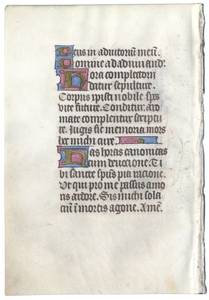 Deus in adiutoriū meū.
Domine ad adiuuand
Hora completorii
datur sepulture.
Corpus xpisti nobile spes
vite future. Conditur aro
mate complentur scriptu
re. Iugis sit memoria mors
hec michi cure.
Has horas canonicas
cum deuocione. Ti
bi pia racione.
Ut qui pro me passus amo
ris ardore. Sis michi sola
ciū ī mortis agone. Amē.